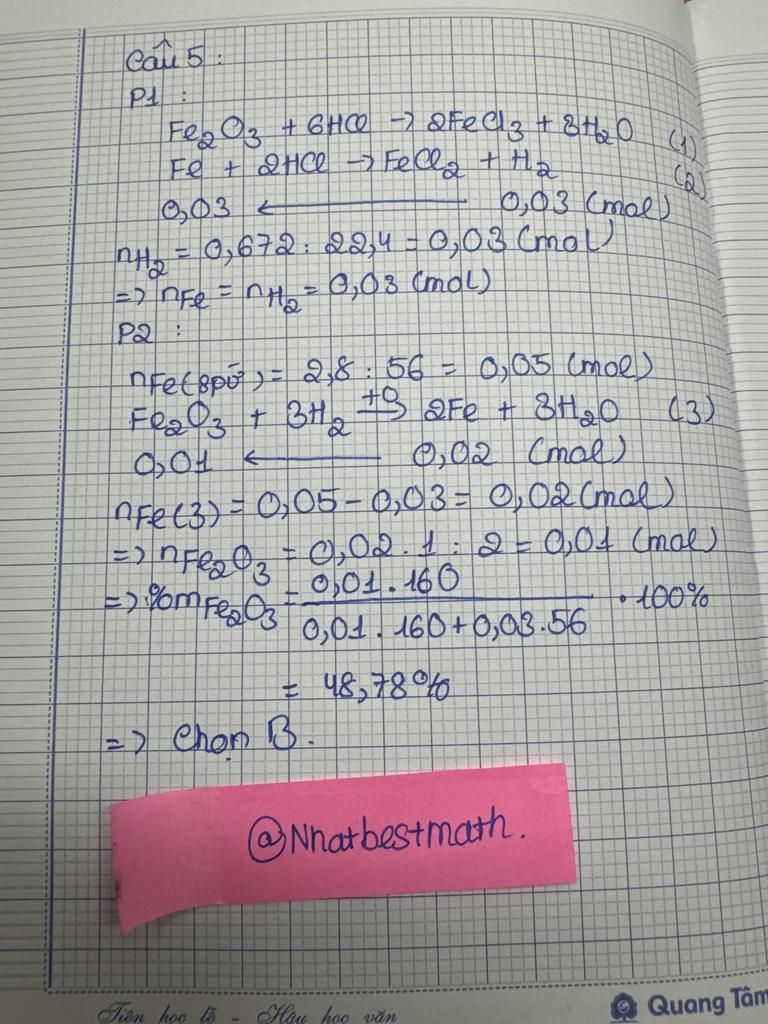 Câu 5 :
P1 :
Fe₂O₃ + 6HCl → 2FeCl₃ + 3H₂O (1)
Fe + 2HCl → FeCl₂ + H₂ (2)
0,03 ← 0,03 (mol)
nH₂ = 0,672 : 22,4 = 0,03 (mol)
=> nFe = nH₂ = 0,03 (mol)
P2 :
nFe(spứ) = 2,8 : 56 = 0,05 (mol)
Fe₂O₃ + 3H₂ → 2Fe + 3H₂O (3)
0,01 ← 0,02 (mol)
nFe(3) = 0,05 - 0,03 = 0,02 (mol)
=> nFe₂O₃ = 0,02 . 1 : 2 = 0,01 (mol)
=> %mFe₂O₃ = 0,01 . 160 / 0,01 . 160 + 0,03 . 56 . 100%
= 48,78%
=> Chọn B.
@Nhatbestmath.
Tiên học lễ - Hậu học văn
Quang Tâm